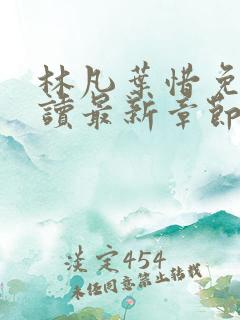 林凡葉惜免
讀最新章節
淡定454
未经同意禁止转载